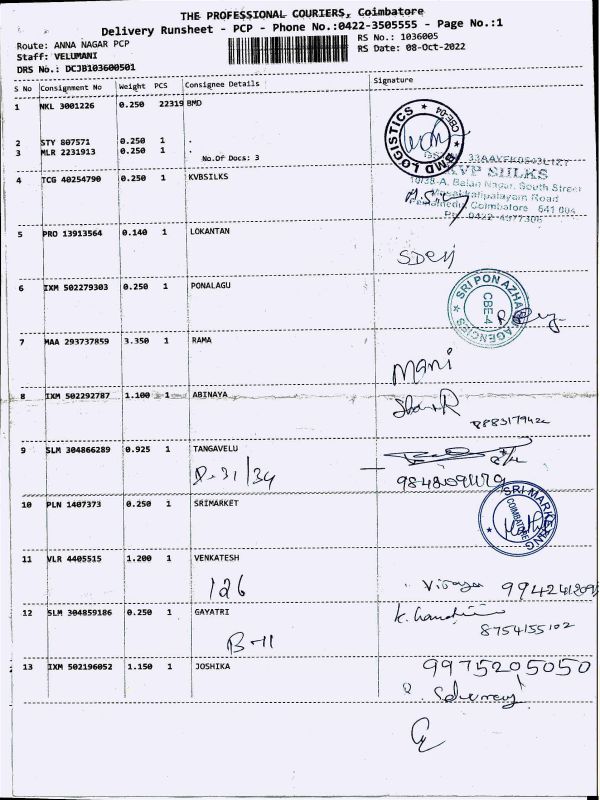 THE PROFESSIONAL COURIERS, Coimbatore
Delivery Runsheet - PCP - Phone No.:0422-3505555 - Page No.:1
Route: ANNA NAGAR PCP
RS No.: 1036005
Staff: VELUMANI
RS Date: 08-Oct-2022
DRS No.: DCJB103600501
S No Consignment No Weight PCS Consignee Details Signature
1 NKL 3001226 0.250 22319 BMD
BMD LOGISTICS CBE-04
2 STY 807571 0.250 1 .
3 MLR 2231913 0.250 1 .
No.Of Docs: 3
4 TCG 40254790 0.250 1 KVBSILKS
10/38-A, Balan Nagar, South Street
Coimbatore - 641 004
Ph: 0422-4977306
5 PRO 13913564 0.140 1 LOKANTAN
6 IXM 502279303 0.250 1 PONALAGU
SRI PON AZHAGU AGENCIES CBE-4
7 MAA 293737859 3.350 1 RAMA
Mani
8 IXM 502292787 1.100 1 ABINAYA
9 SLM 304866289 0.925 1 TANGAVELU
D-31/34
10 PLN 1407373 0.250 1 SRIMARKET
SRI MARKETING COIMBATORE
11 VLR 4405515 1.200 1 VENKATESH
126
12 SLM 304859186 0.250 1 GAYATRI
B-11
8754155102
13 IXM 502196052 1.150 1 JOSHIKA
9975205050